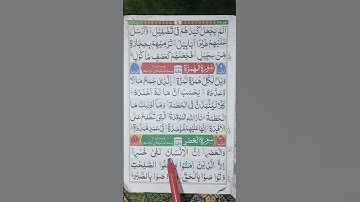 اَلَمْ يَجْعَلْ كَيْدَهُمْ فِيْ تَضْلِيْلٍ وَّاَرْسَلَ
عَلَيْهِمْ طَيْرًا اَبَابِيْلَ تَرْمِيْهِمْ بِحِجَارَةٍ
مِّنْ سِجِّيْلٍ فَجَعَلَهُمْ كَعَصْفٍ مَّاْكُوْلٍ
سُوْرَةُ الْهُمَزَةِ
وَيْلٌ لِّكُلِّ هُمَزَةٍ لُّمَزَةِ الَّذِيْ جَمَعَ مَالًا
وَّعَدَّدَهٗ يَحْسَبُ اَنَّ مَالَهٗ اَخْلَدَهٗ
كَلَّا لَيُنْبَذَنَّ فِي الْحُطَمَةِ وَمَا اَدْرٰىكَ مَا
الْحُطَمَةُ نَارُ اللّٰهِ الْمُوْقَدَةُ الَّتِيْ تَطَّلِعُ عَلَى
الْاَفْـِٕدَةِ اِنَّهَا عَلَيْهِمْ مُّؤْصَدَةٌ فِيْ عَمَدٍ مُّمَدَّدَةٍ
سُوْرَةُ الْعَصْرِ
وَالْعَصْرِ اِنَّ الْاِنْسَانَ لَفِيْ خُسْرٍ
اِلَّا الَّذِيْنَ اٰمَنُوْا وَعَمِلُوا الصّٰلِحٰتِ
وَتَوَاصَوْا بِالْحَقِّ وَتَوَاصَوْا بِالصَّبْرِ